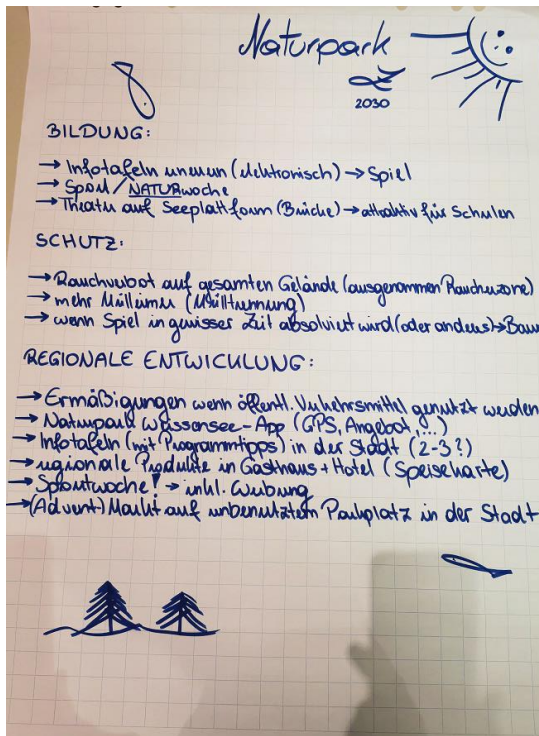 Naturpark
2030
BILDUNG:
→ Infotafeln erneuern (elektronisch) → Spiel
→ Sport/NATURwoche
→ Theater auf Seeplattform (Brücke) → attraktiv für Schulen
SCHUTZ:
→ Rauchverbot auf gesamten Gelände (ausgenommen Raucherzone)
→ mehr Mülleimer (Mülltrennung)
→ wenn Spiel in gewisser Zeit absolviert wird (oder anders) → Baum
REGIONALE ENTWICKLUNG:
→ Ermäßigungen wenn öffentl. Verkehrsmittel genutzt werden
→ Naturpark Weissensee-App (GPS, Angebot,...)
→ Infotafeln (mit Programmtipps) in der Stadt (2-3?)
→ regionale Produkte in Gasthaus + Hotel (Speisekarte)
→ Sportwoche! → inkl. Werbung
→ (Advent-) Markt auf unbenutztem Parkplatz in der Stadt